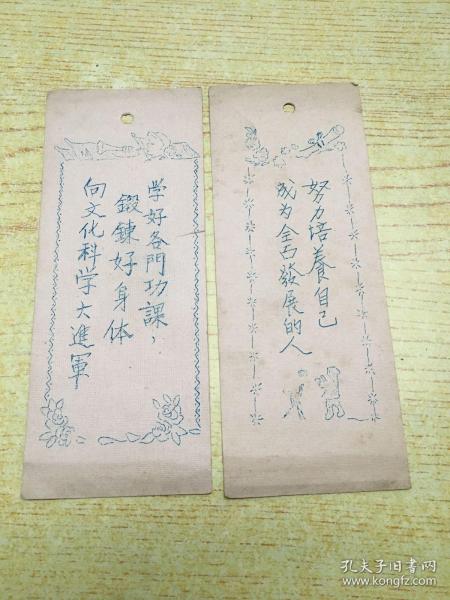 学好各門功課，
鍛鍊好身体
向文化科学大進軍
努力培養自己
成为全面發展的人
孔夫子旧书网
www.kongfz.com